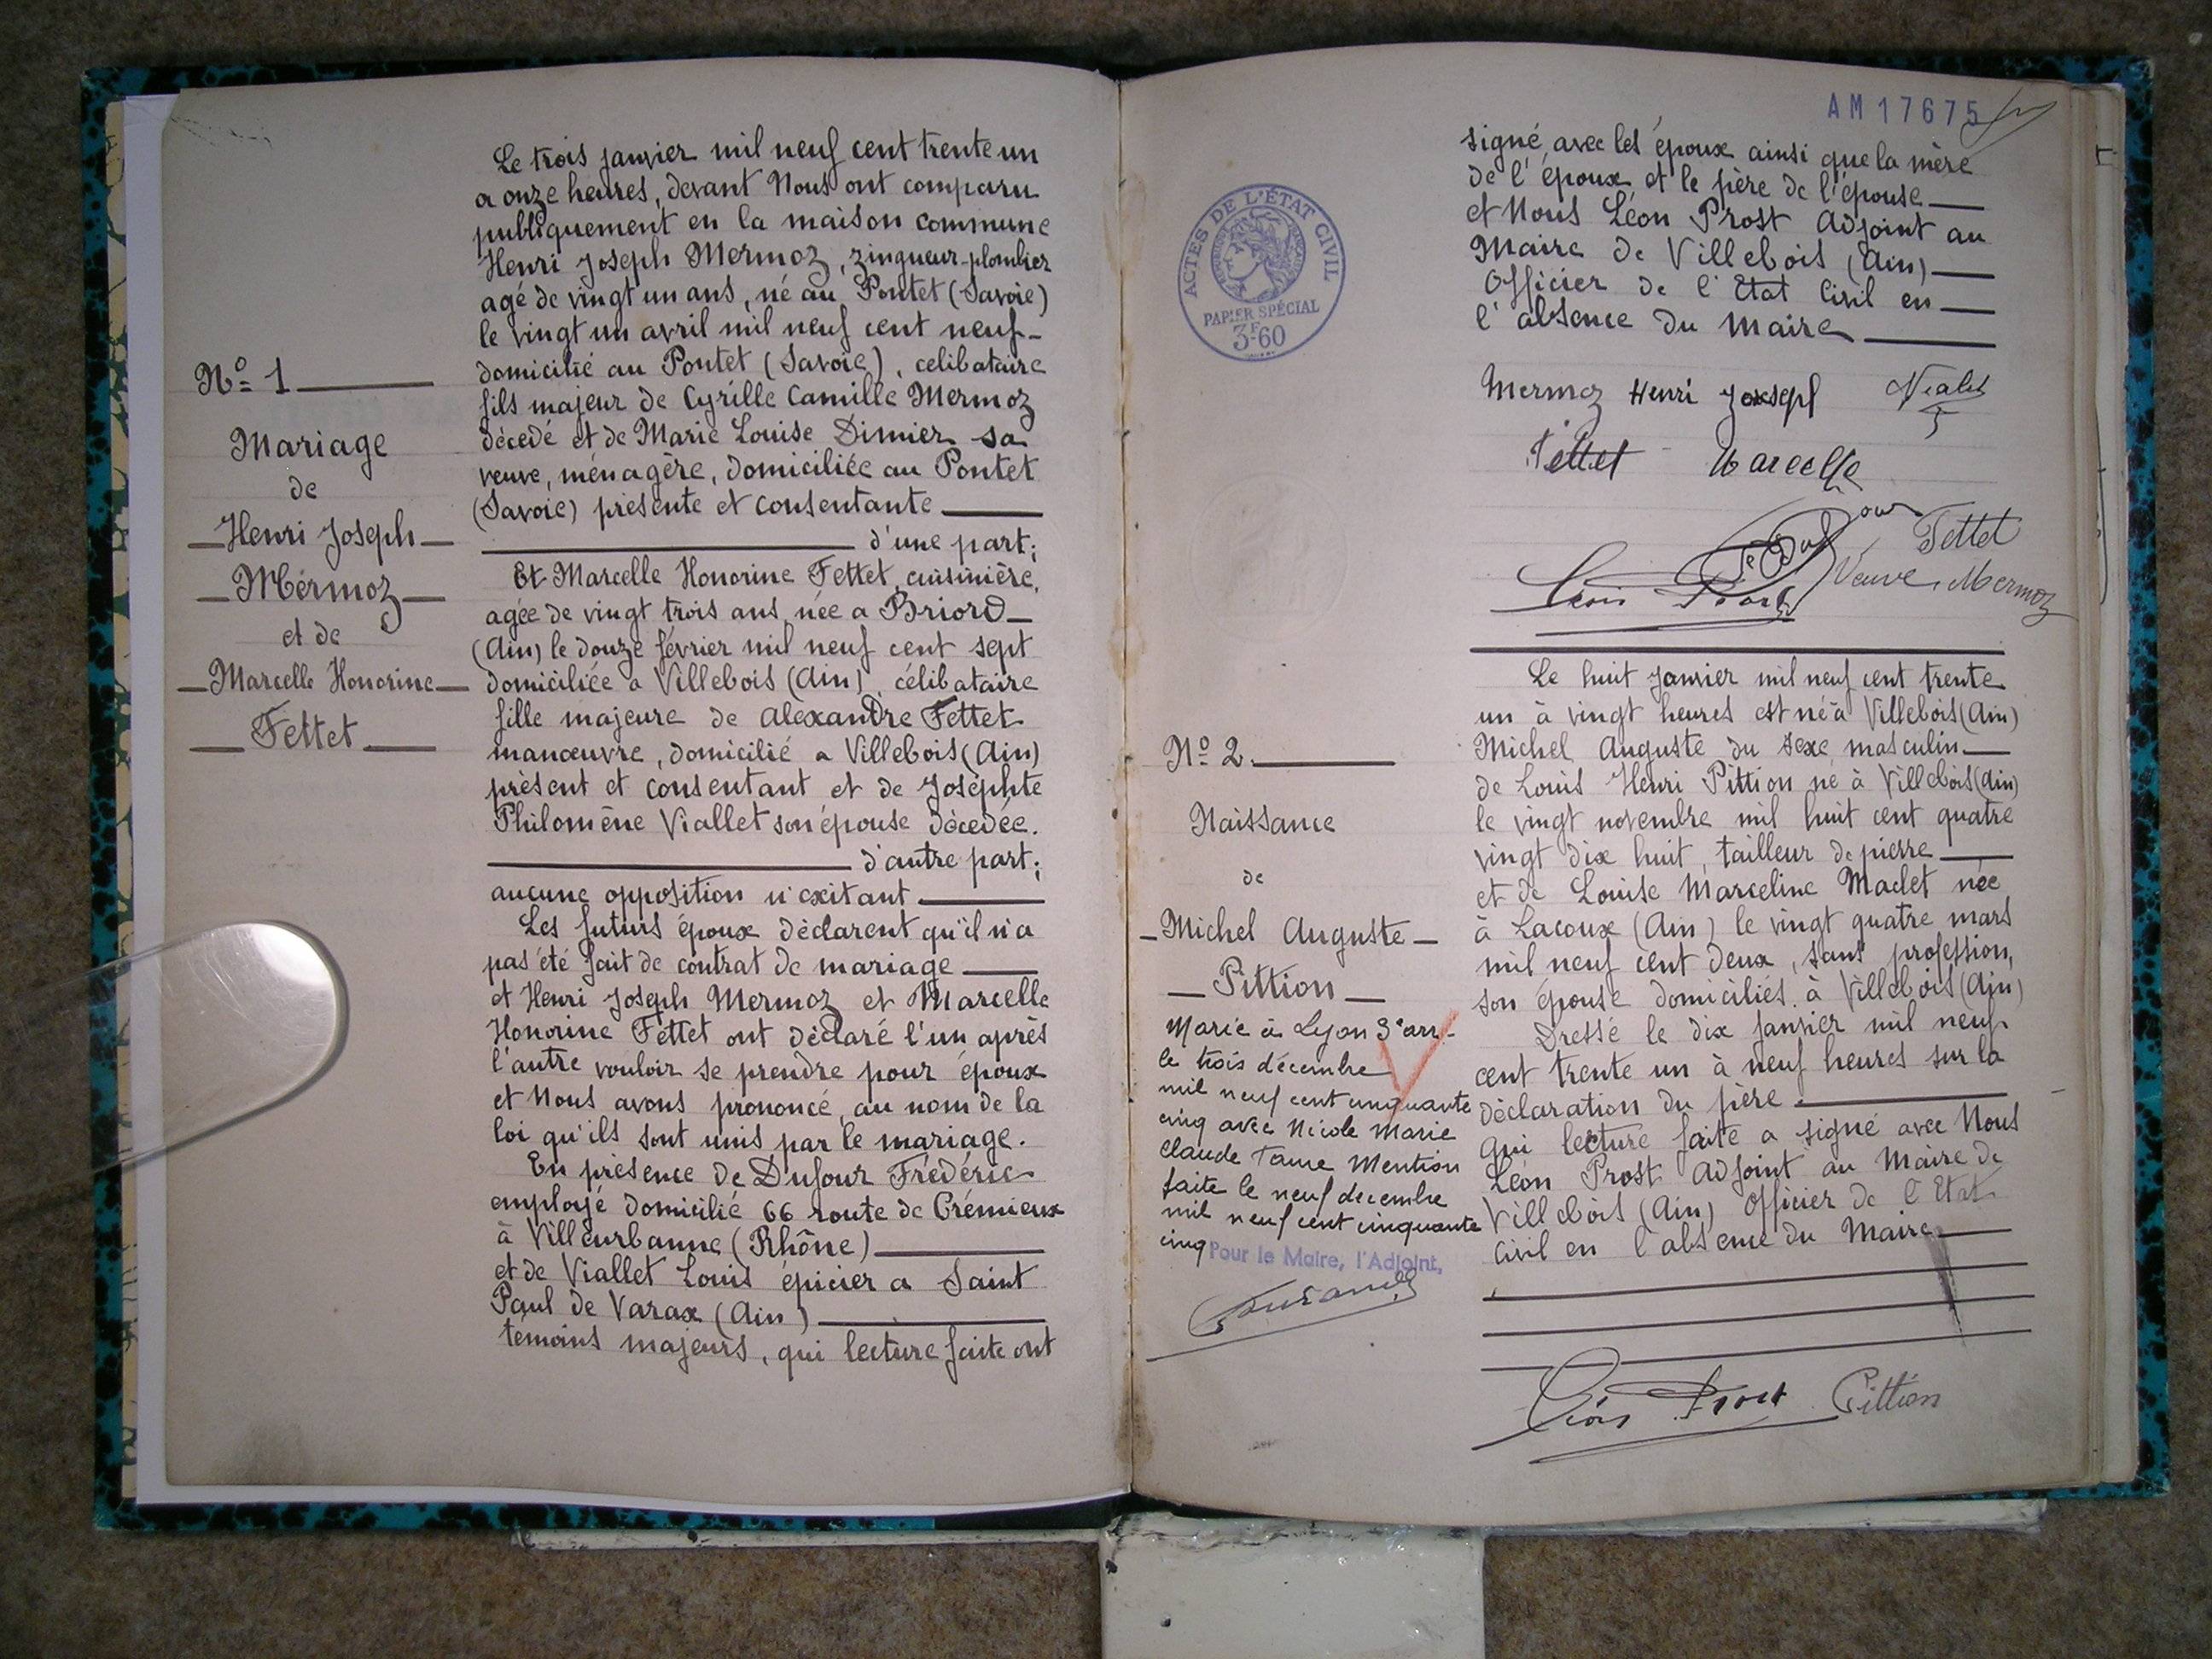 Le trois janvier mil neuf cent trente un
a onze heures, devant Nous ont comparu
publiquement en la maison commune
Henri Joseph Mermoz, zingueur-plombier
agé de vingt un ans, né au Pontet (Savoie)
le vingt un avril mil neuf cent neuf
domicilié au Pontet (Savoie), celibataire
fils majeur de Cyrille Camille Mermoz
décedé et de Marie Louise Dimier sa
veuve, ménagère, domiciliée au Pontet
(Savoie) présente et consentante
d'une part;
Et Marcelle Honorine Fettet, cuisinière,
agée de vingt trois ans née a Briord
(Ain) le douze février mil neuf cent sept
domiciliée a Villebois (Ain), célibataire
fille majeure de Alexandre Fettet
manœuvre, domicilié a Villebois (Ain)
présent et consentant et de Joséphte
Philomène Viallet son épouse décedée.
d'autre part;
aucune opposition n'exitant
Les futurs époux déclarent qu'il n'a
pas été fait de contrat de mariage
et Henri Joseph Mermoz et Marcelle
Honorine Fettet ont déclaré l'un après
l'autre vouloir se prendre pour époux
et Nous avons prononcé, au nom de la
loi qu'ils sont unis par le mariage.
En présence de Dufour Frédéric
employé domicilié 66 route de Crémieux
à Villeurbanne (Rhône)
et de Viallet Louis épicier a Saint
Paul de Varax (Ain)
témoins majeurs, qui lecture faite ont
Nº 1
Mariage
de
Henri Joseph
Mermoz
et de
Marcelle Honorine
Fettet
AM17675
signé, avec les époux ainsi que la mère
de l'époux et le père de l'épouse
et Nous Léon Prost Adjoint au
Maire de Villebois (Ain)
Officier de l'Etat Civil en
l'absence du Maire
ACTES DE L'ÉTAT CIVIL
PAPIER SPÉCIAL
3F60
Mermoz Henri Joseph Vialet
Fettet Marcelle
Fettet
Léon Prost Veuve Mermoz
Nº 2
Naissance
de
Michel Auguste
Pittion
Marié à Lyon 3e arr.
le trois décembre
mil neuf cent cinquante
cinq avec Nicole Marie
Claude Mention
faite le neuf decembre
mil neuf cent cinquante
cinq
Pour le Maire, l'Adjoint,
Le huit Janvier mil neuf cent trente
un à vingt heures est né à Villebois (Ain)
Michel Auguste du sexe masculin
de Louis Henri Pittion né à Villebois (Ain)
le vingt novembre mil huit cent quatre
vingt dix huit, tailleur de pierre
et de Louise Marceline Maclet née
à Lacoux (Ain) le vingt quatre mars
mil neuf cent deux, sans profession,
son épouse domiciliés à Villebois (Ain)
Dressé le dix janvier mil neuf
cent trente un à neuf heures sur la
déclaration du père
qui lecture faite a signé avec Nous
Léon Prost Adjoint au Maire de
Villebois (Ain) Officier de l'Etat
Civil en l'absence du Maire
Léon Prost Pittion